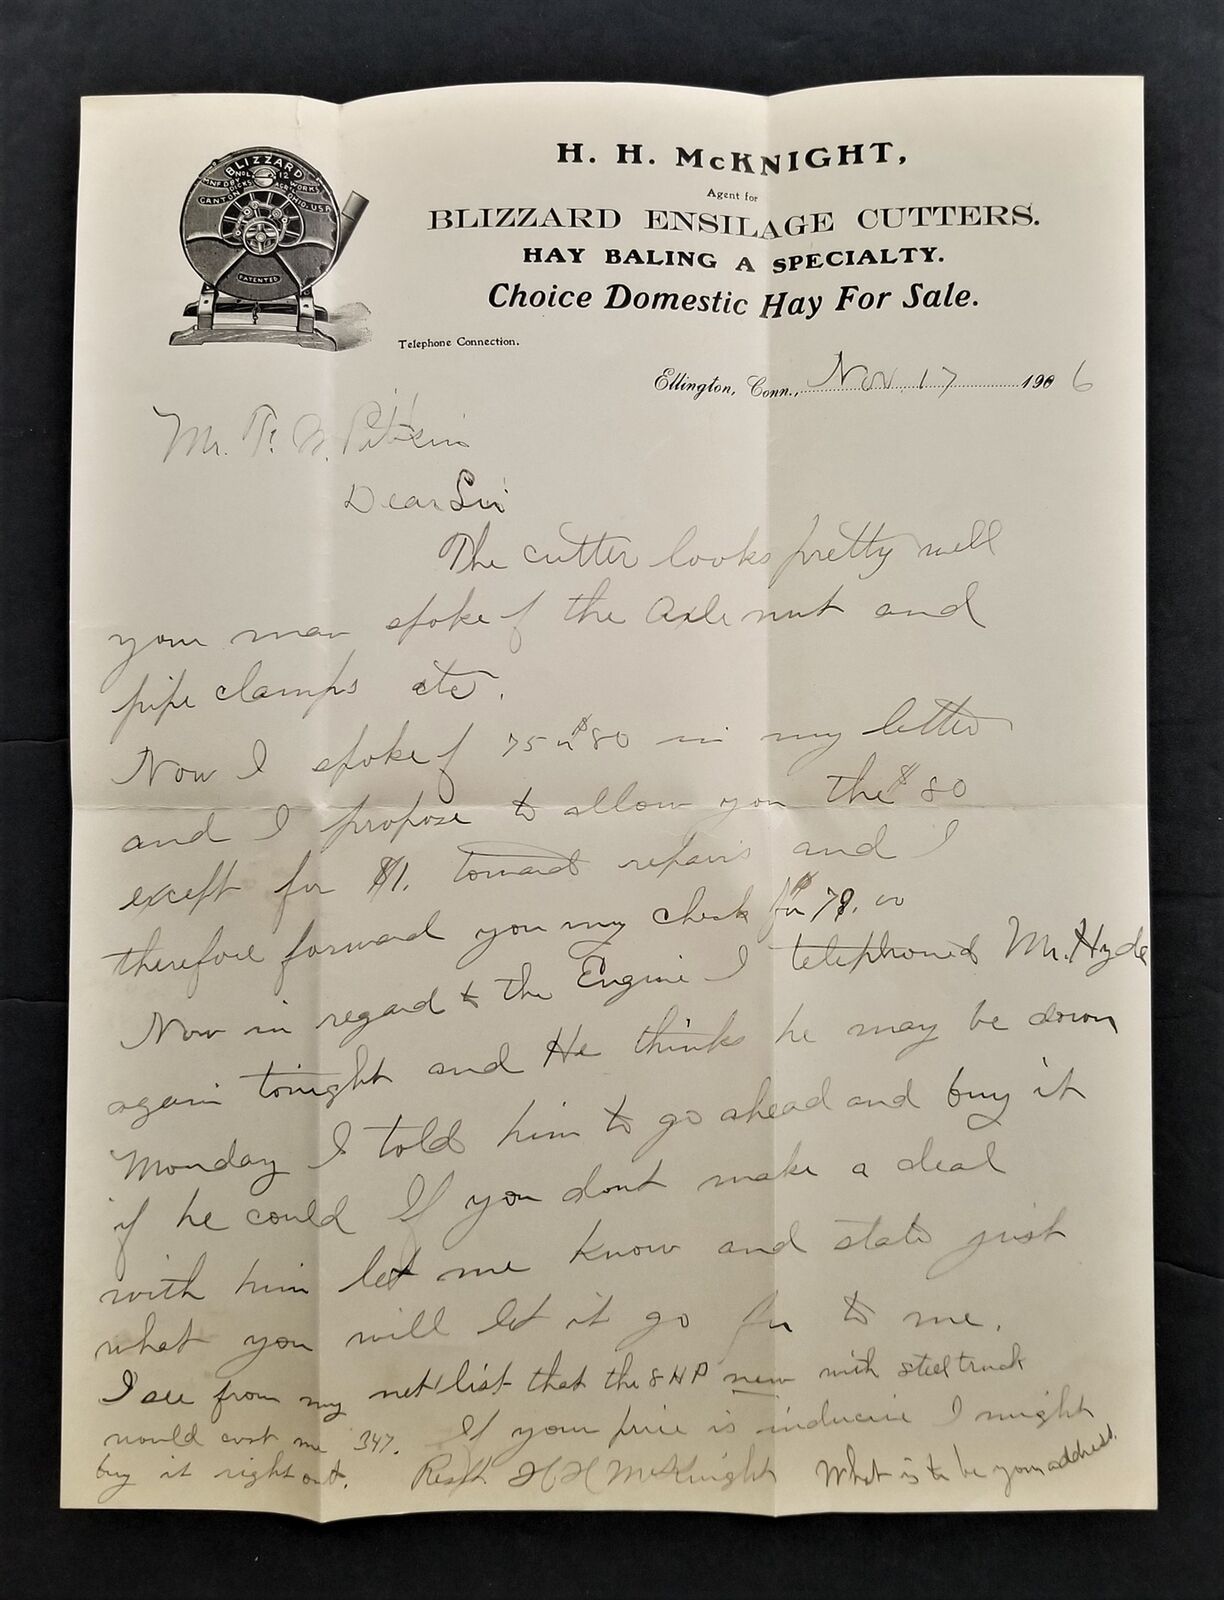 BLIZZARD
No. 12
MNF'D BY DICKS AGR'L WORKS
CANTON OHIO. U.S.A
PATENTED
H. H. McKNIGHT,
Agent for
BLIZZARD ENSILAGE CUTTERS.
HAY BALING A SPECIALTY.
Choice Domestic Hay For Sale.
Telephone Connection.
Ellington, Conn., Nov. 17 1906
Mr. Pitkin
Dear Sir
The cutter looks pretty well
your man spoke of the Axle nut and
pipe clamps etc.
Now I spoke of 75 or $80 in my letter
and I propose to allow you the $80
except for $1. toward repairs and I
therefore forward you my check for $79.00
Now in regard to the Engine I telephoned Mr. Hyde
again tonight and He thinks he may be down
Monday I told him to go ahead and buy it
if he could If you dont make a deal
with him let me know and state just
what you will let it go for to me.
I see from my net list that the 8 HP new with steel truck
would cost me 347. If your price is I might
buy it right out. Resp't H H McKnight What is to be your address.